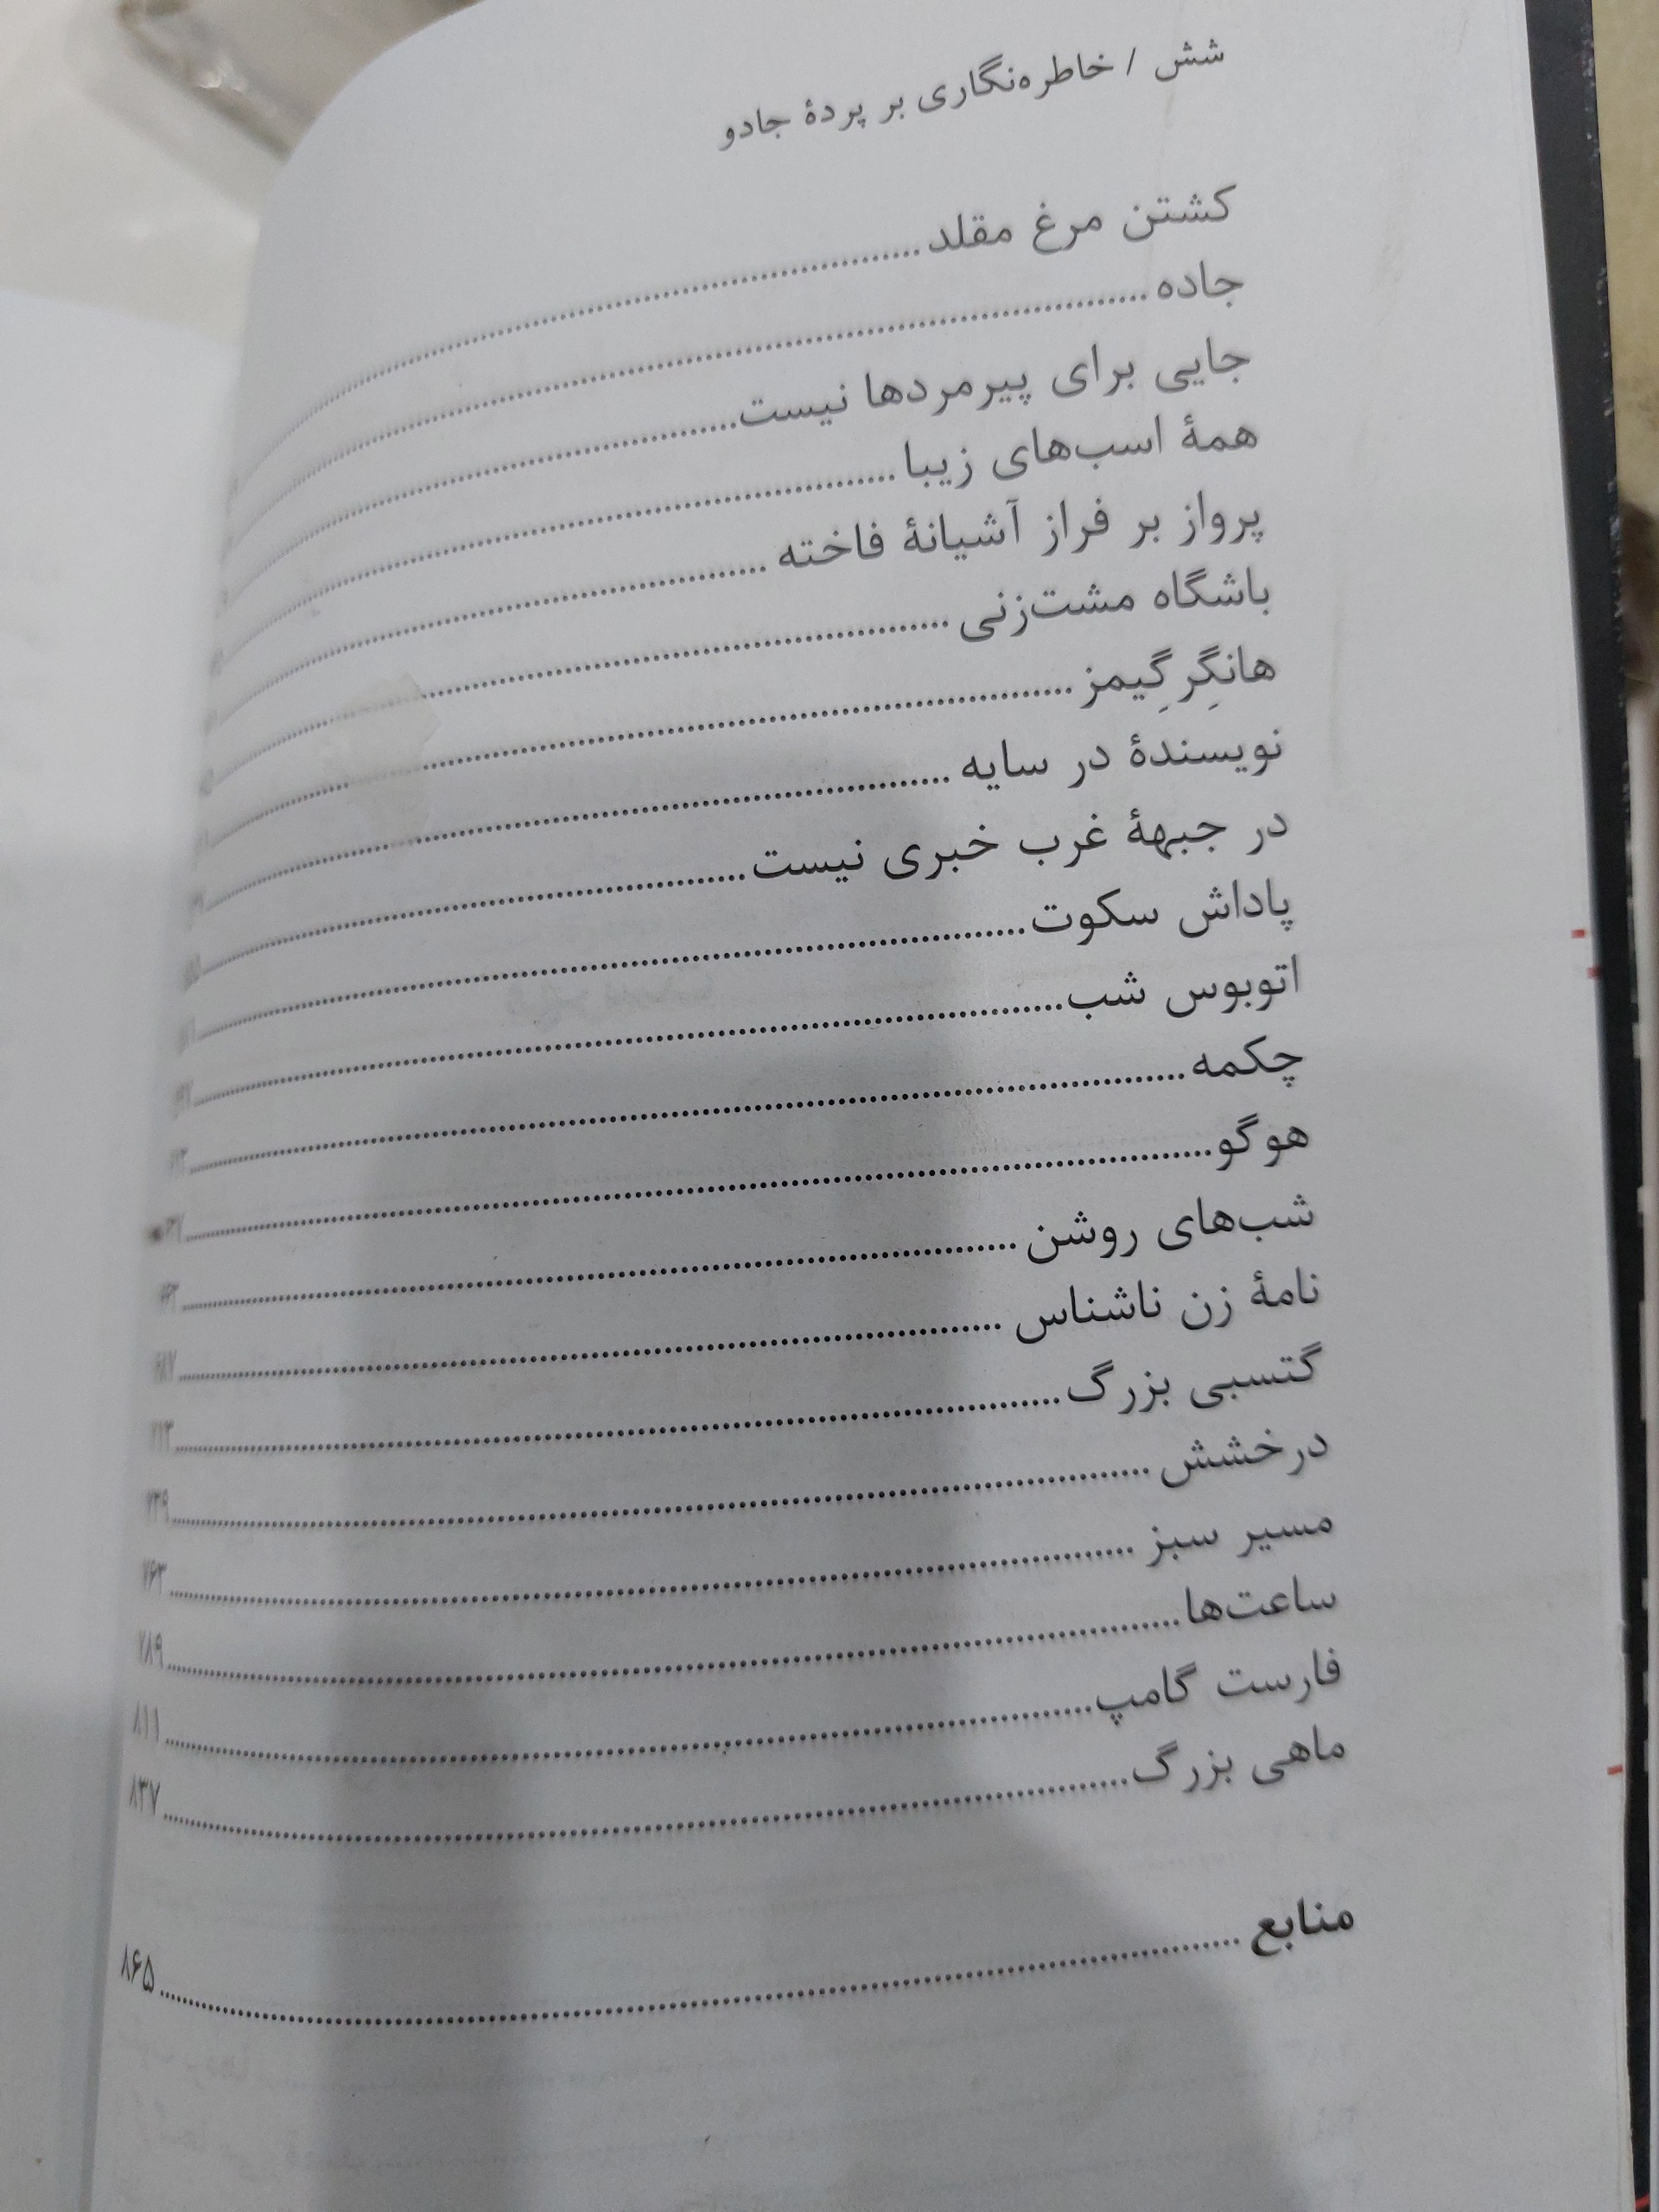 شش / خاطره‌نگاری بر پردهٔ جادو
کشتن مرغ مقلد
جاده
جایی برای پیرمردها نیست
همهٔ اسب‌های زیبا
پرواز بر فراز آشیانهٔ فاخته
باشگاه مشت‌زنی
هانگِر گِیمز
نویسندهٔ در سایه
در جبههٔ غرب خبری نیست
پاداش سکوت
اتوبوس شب
چکمه
هوگو
شب‌های روشن
نامهٔ زن ناشناس
گتسبی بزرگ ۷۱۳
درخشش ۷۳۹
مسیر سبز ۷۶۳
ساعت‌ها ۷۸۹
فارست گامپ ۸۱۱
ماهی بزرگ ۸۳۷
منابع ۸۶۵